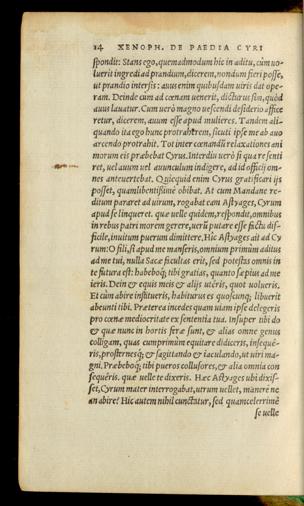 14 XENOPH. DE PAEDIA CYRI
spondit: Stans ego, quemadmodum hic in aditu, cùm uo-
luerit ingredi ad prandium, dicerem, nondum fieri posse,
ut prandio intersis: auus enim quibusdam uiris dat ope-
ram. Deinde cùm ad cœnam uenerit, dicturus sim, quòd
auus lauatur. Cum uerò magno uescendi desiderio affice
retur, dicerem, auum esse apud mulieres. Tandem ali-
quando ita ego hunc protraherem, sicuti ipse me ab auo
arcendo protrahit. Tot inter cœnandū relaxationes ani
morum eis præbebat Cyrus. Interdiu uerò si qua re senti
ret, uel auum uel auunculum indigere, ad id officij om-
nes anteuertebat. Quicquid enim Cyrus gratificari ijs
posset, quamlibentissimè obibat. At cum Mandane re-
ditum pararet ad uirum, rogabat eam Astyages, Cyrum
apud se linqueret. quæ uelle quidem, respondit, omnibus
in rebus patri morem gerere, uerū putare esse factu dif-
ficile, inuitum puerum dimittere. Hic Astyages ait ad Cy
rum: O fili, si apud me manseris, omnium primùm aditus
ad me tui, nulla Sacæ facultas erit, sed potestas omnis in
te futura est: habeboq́; tibi gratias, quanto sæpius ad me
ieris. Dein & equis meis & alijs utêris, quot uolueris.
Et cùm abire institueris, habiturus es quoscunq; libuerit
abeunti tibi. Præterea incedes quam uiam ipse delegeris
pro cœnæ mediocritate ex sententia tua. Insuper tibi do
& quæ nunc in hortis feræ sunt, & alias omne genus
colligam, quas cumprimùm equitare didiceris, insequê-
ris, prosternesq́; & sagittando & iaculando, ut uiri ma-
gni. Præbeboq́; tibi pueros collusores, & alia omnia con
sequêris. quæ uelle te dixeris. Hæc Astyages ubi dixis-
set, Cyrum mater interrogabat, utrum uellet, manere ne
an abire? Hic autem nihil cunctatur, sed quamcelerrimè
se uelle